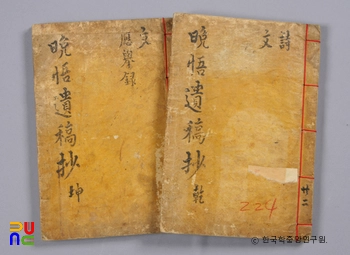 晩悟遺稿抄 乾
詩
文
224
廿二
晩悟遺稿抄 坤
文
應擧錄
ⓒ 한국학중앙연구원